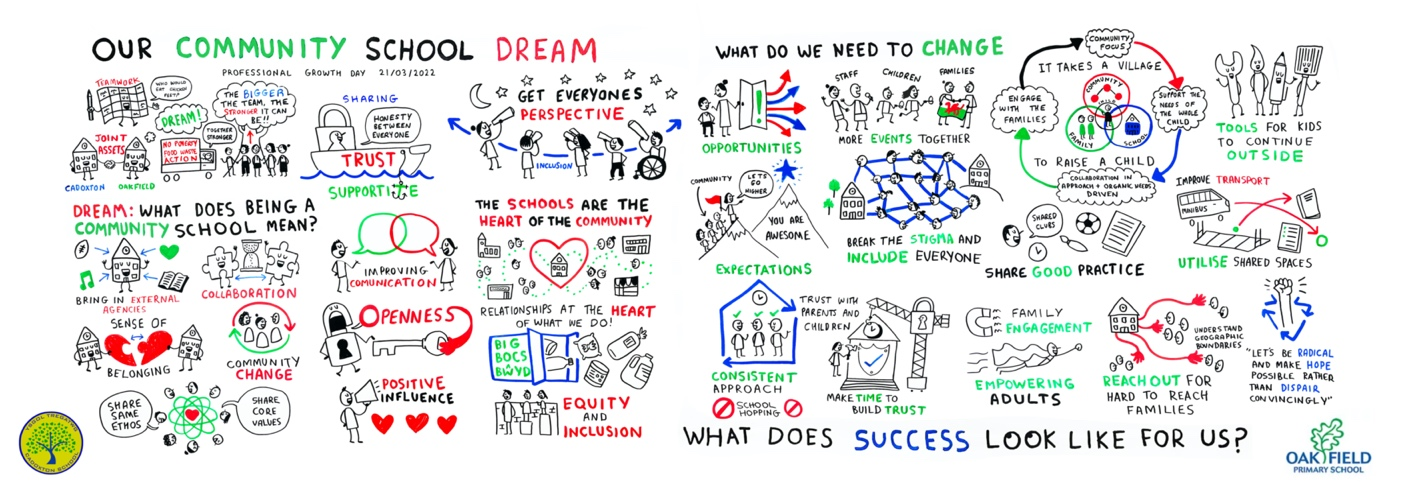 OUR COMMUNITY SCHOOL DREAM
PROFESSIONAL GROWTH DAY 21/03/2022
TEAMWORK
WHO WOULD
EAT CHICKEN
FEET?
DREAM!
THE BIGGER
THE TEAM, THE
STRONGER IT CAN
BE!!
TOGETHER
STRONGER
JOINT
ASSETS
NO POVERTY
FOOD WASTE
ACTION
CADOXTON
OAKFIELD
SHARING
HONESTY
BETWEEN
EVERYONE
TRUST
SUPPORTIVE
GET EVERYONES
PERSPECTIVE
INCLUSION
DREAM: WHAT DOES BEING A
COMMUNITY SCHOOL MEAN?
BRING IN EXTERNAL
AGENCIES
COLLABORATION
SENSE OF
BELONGING
COMMUNITY
CHANGE
SHARE
SAME
ETHOS
SHARE
CORE
VALUES
IMPROVING
COMUNICATION
OPENNESS
POSITIVE
INFLUENCE
THE SCHOOLS ARE THE
HEART OF THE COMMUNITY
RELATIONSHIPS AT THE HEART
OF WHAT WE DO!
BIG
BOCS
BWYD
EQUITY
AND
INCLUSION
CADOXTON SCHOOL
WHAT DO WE NEED TO CHANGE
OPPORTUNITIES
STAFF
CHILDREN
FAMILIES
MORE EVENTS TOGETHER
COMMUNITY
FOCUS
IT TAKES A VILLAGE
ENGAGE
WITH THE
FAMILIES
COMMUNITY
CHILD
FAMILY
SCHOOL
SUPPORT THE
NEEDS OF
THE WHOLE
CHILD
TO RAISE A CHILD
COLLABORATION IN
APPROACH + ORGANIC NEEDS
DRIVEN
TOOLS FOR KIDS
TO CONTINUE
OUTSIDE
COMMUNITY
LETS
GO
HIGHER
YOU ARE
AWESOME
EXPECTATIONS
BREAK THE STIGMA AND
INCLUDE EVERYONE
SHARED
CLUBS
SHARE GOOD PRACTICE
IMPROVE TRANSPORT
MINIBUS
UTILISE SHARED SPACES
TRUST WITH
PARENTS AND
CHILDREN
CONSISTENT
APPROACH
SCHOOL
HOPPING
MAKE TIME TO
BUILD TRUST
FAMILY
ENGAGEMENT
EMPOWERING
ADULTS
UNDERSTAND
GEOGRAPHIC
BOUNDARIES
REACH OUT FOR
HARD TO REACH
FAMILIES
"LET'S BE RADICAL
AND MAKE HOPE
POSSIBLE RATHER
THAN DISPAIR
CONVINCINGLY"
WHAT DOES SUCCESS LOOK LIKE FOR US?
OAKFIELD
PRIMARY SCHOOL